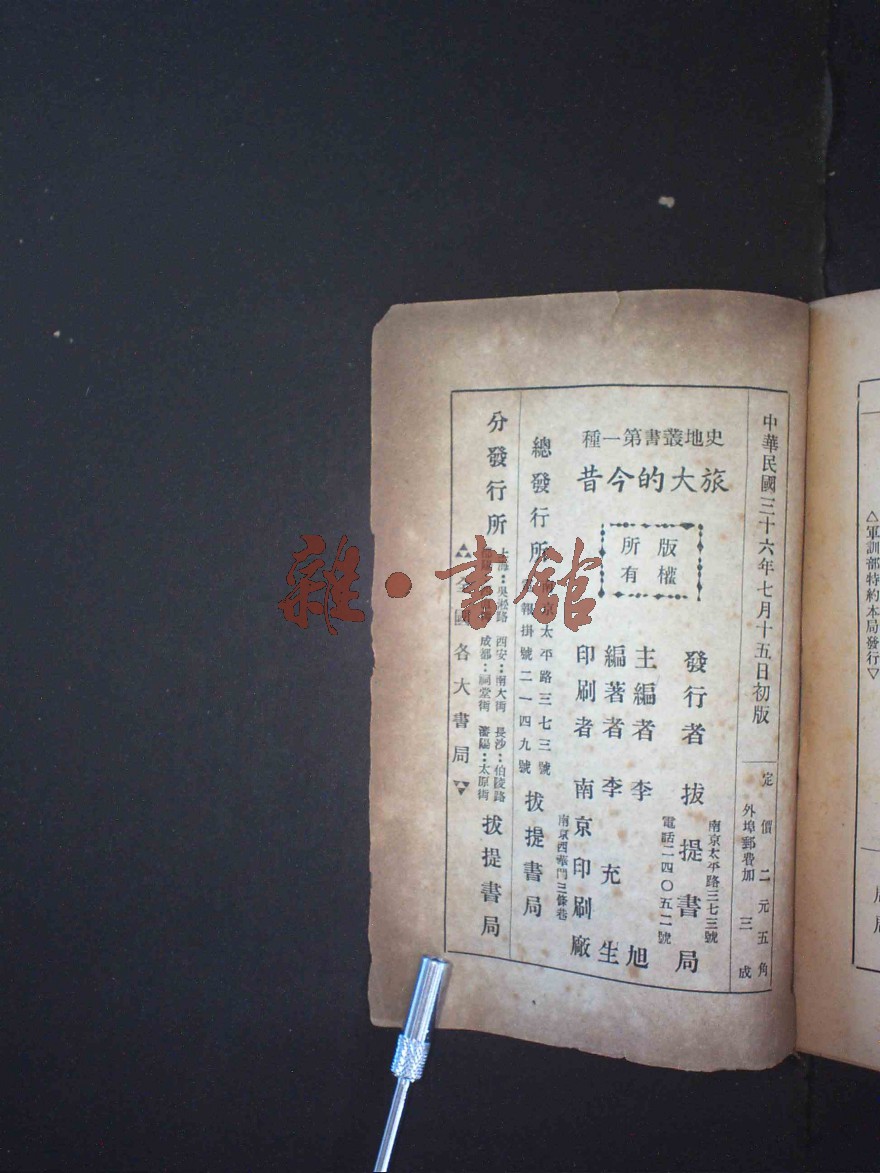 中華民國三十六年七月十五日初版
定價二元五角
外埠郵費加三成
史地叢書第一種
旅大的今昔
版權
所有
發行者 拔提書局
南京太平路三七三號
電話二一四〇五二號
主編者 李旭
編著者 李充生
印刷者 南京印刷廠
南京西華門三條巷
總發行所
京太平路三七三號
報掛號二一四九號
拔提書局
分發行所
吳淞路 西安：南大街 長沙：伯陵路
成都：祠堂街 瀋陽：太原街
全國各大書局
拔提書局
雜·書館
△軍訓部特約本局發行▽